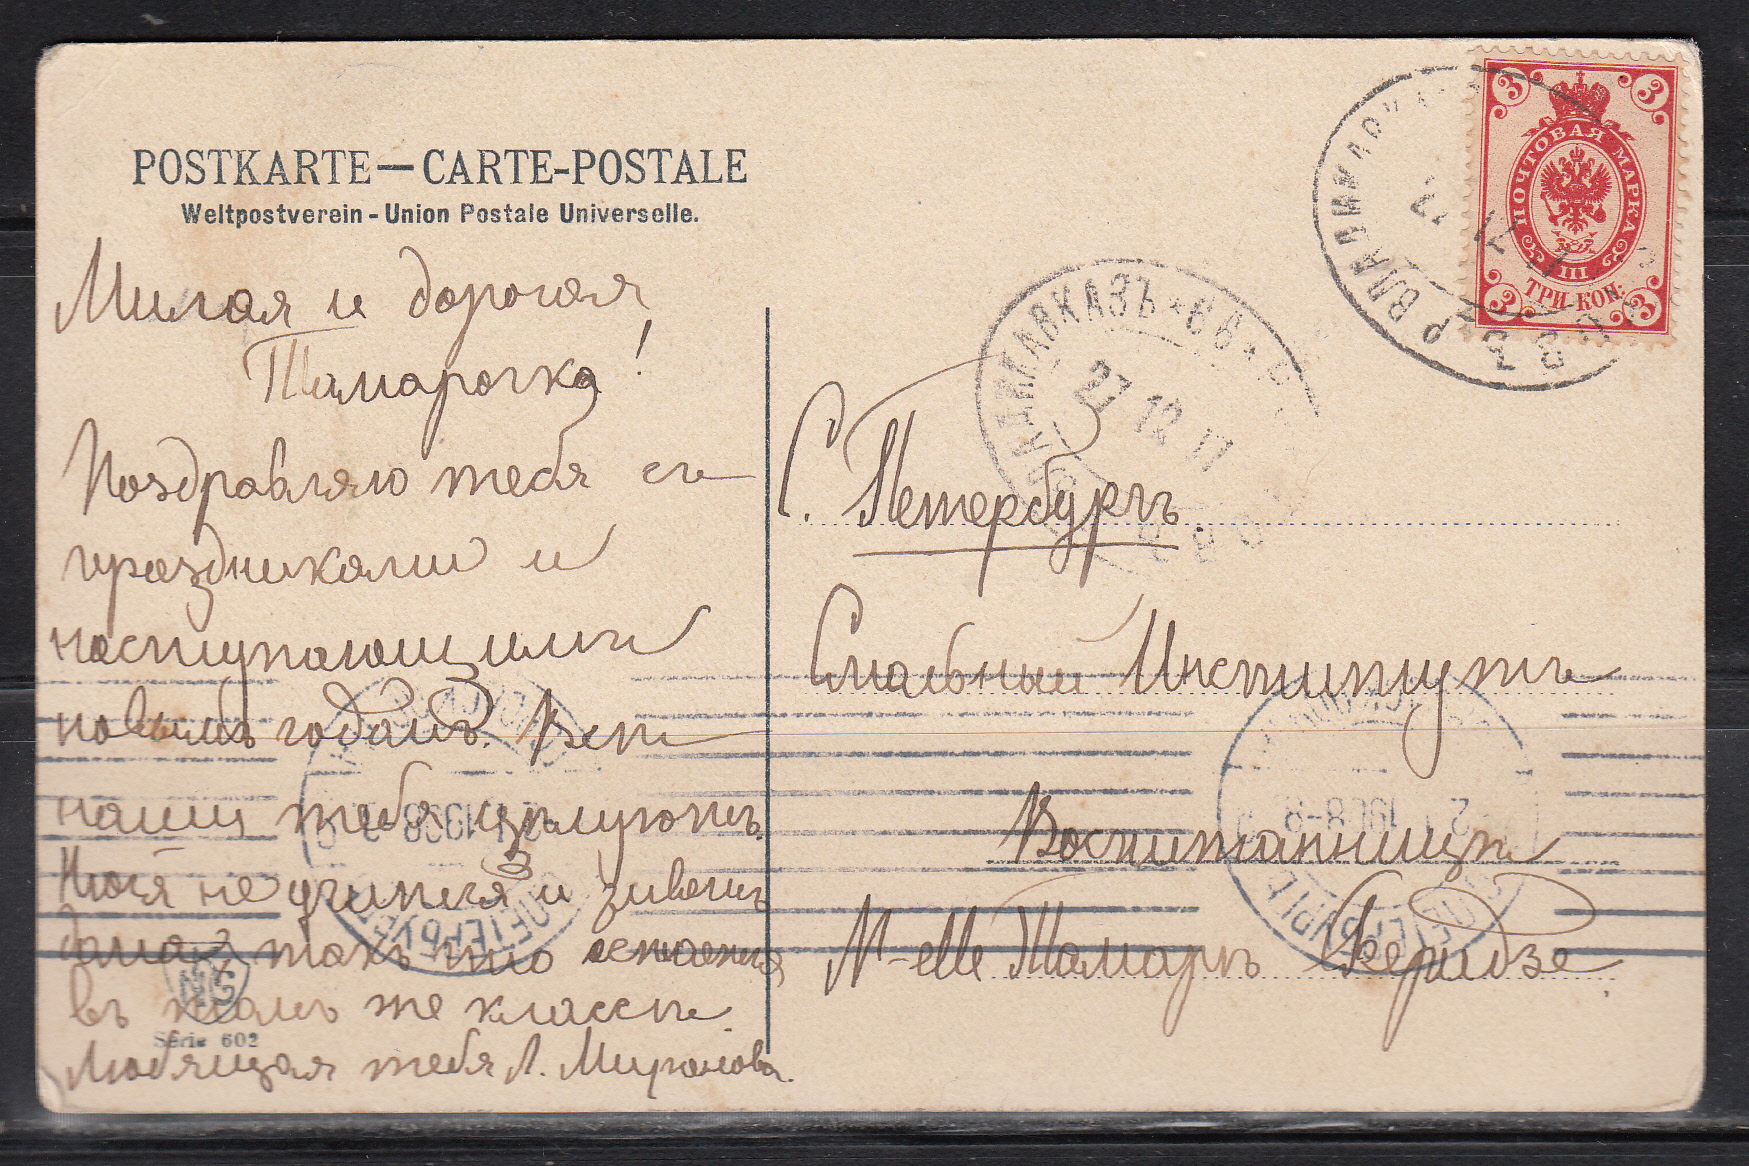 POSTKARTE — CARTE-POSTALE
Weltpostverein - Union Postale Universelle.
Милая и дорогая
Тамарочка!
Поздравляю тебя съ
праздниками и
наступающимъ
новымъ годомъ. Всѣ
наши тебя цѣлуютъ.
не учится и живетъ
дома, такъ что остается
въ томъ же классѣ.
Любящая тебя Л. Миронова.
Serie 602
С. Петербургъ.
Смольный Институтъ
Воспитанницѣ
M-elle Тамарѣ Сверидзе.
3 3
ПОЧТОВАЯ МАРКА
III
ТРИ КОП.
3 3
ВЛАДИКАВКАЗЪ
ВЛАДИКАВКАЗЪ
27 12 11
ПЕТЕРБУРГЪ